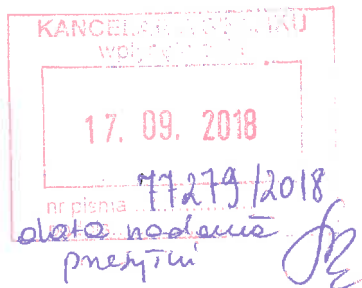 KANCELARIA
17. 09. 2018
nr pisma 77279/2018
data nadania
przesyłki